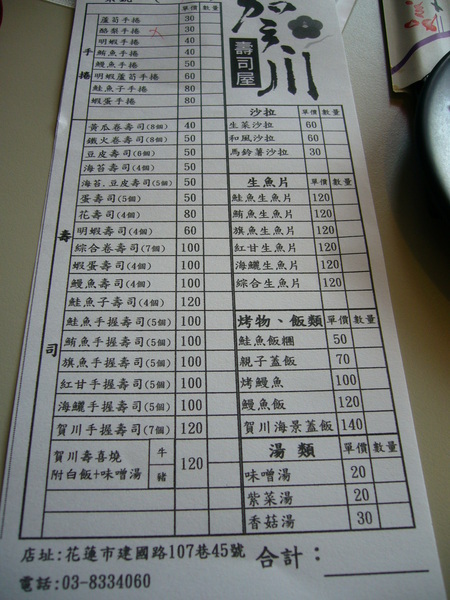 單價 數量
手捲
蘆筍手捲 30
酪梨手捲 30
明蝦手捲 40
鮪魚手捲 40
鰻魚手捲 50
明蝦蘆筍手捲 60
鮭魚子手捲 80
蝦蛋手捲 80
壽司
黃瓜卷壽司(8個) 40
鐵火卷壽司(8個) 50
豆皮壽司(6個) 50
海苔壽司(4個) 50
海苔.豆皮壽司(5個) 50
蛋壽司(5個) 50
花壽司(4個) 80
明蝦壽司(4個) 60
綜合卷壽司(7個) 100
蝦蛋壽司(4個) 100
鰻魚壽司(4個) 100
鮭魚子壽司(4個) 120
鮭魚手握壽司(5個) 100
鮪魚手握壽司(5個) 100
旗魚手握壽司(5個) 100
紅甘手握壽司(5個) 100
海鱺手握壽司(5個) 100
賀川手握壽司(7個) 120
賀川壽喜燒
附白飯+味噌湯
牛
豬
120
賀川
壽司屋
沙拉 單價 數量
生菜沙拉 60
和風沙拉 60
馬鈴薯沙拉 30
生魚片 單價 數量
鮭魚生魚片 120
鮪魚生魚片 120
旗魚生魚片 120
紅甘生魚片 120
海鱺生魚片 120
綜合生魚片 120
烤物、飯類 單價 數量
鮭魚飯糰 50
親子蓋飯 70
烤鰻魚 100
鰻魚飯 120
賀川海景蓋飯 140
湯類 單價 數量
味噌湯 20
紫菜湯 20
香菇湯 30
店址:花蓮市建國路107巷45號 合計：
電話:03-8334060